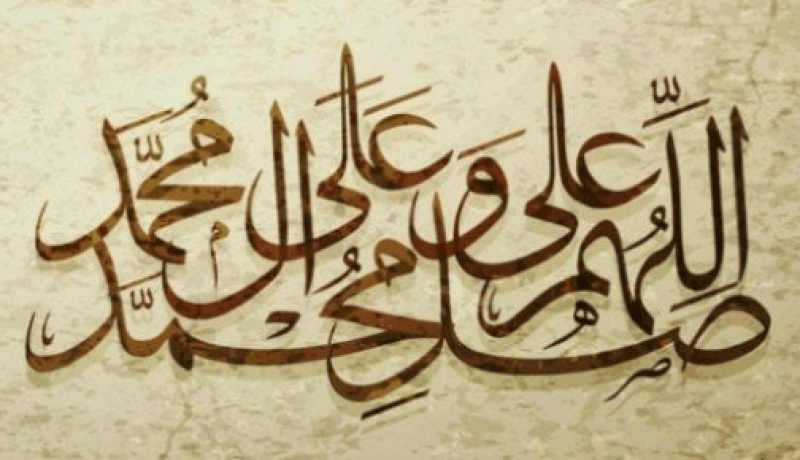 اللّٰهُمَّ صَلِّ عَلَى مُحَمَّدٍ وَعَلَى آلِ مُحَمَّدٍ